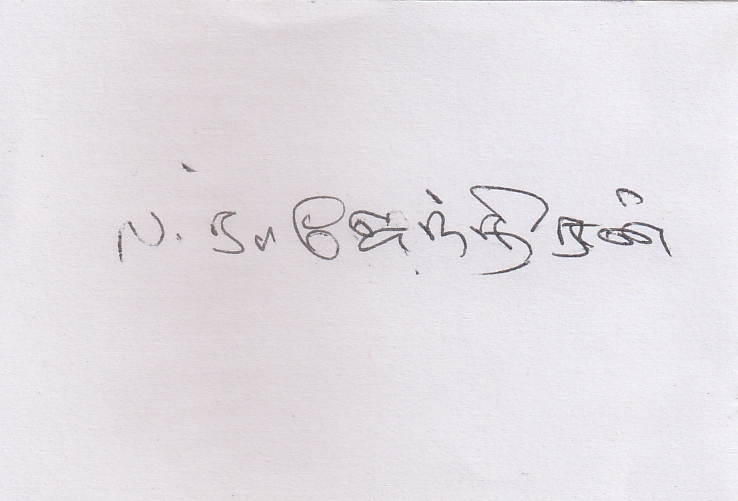 ப. நா ஜேந்திரன்